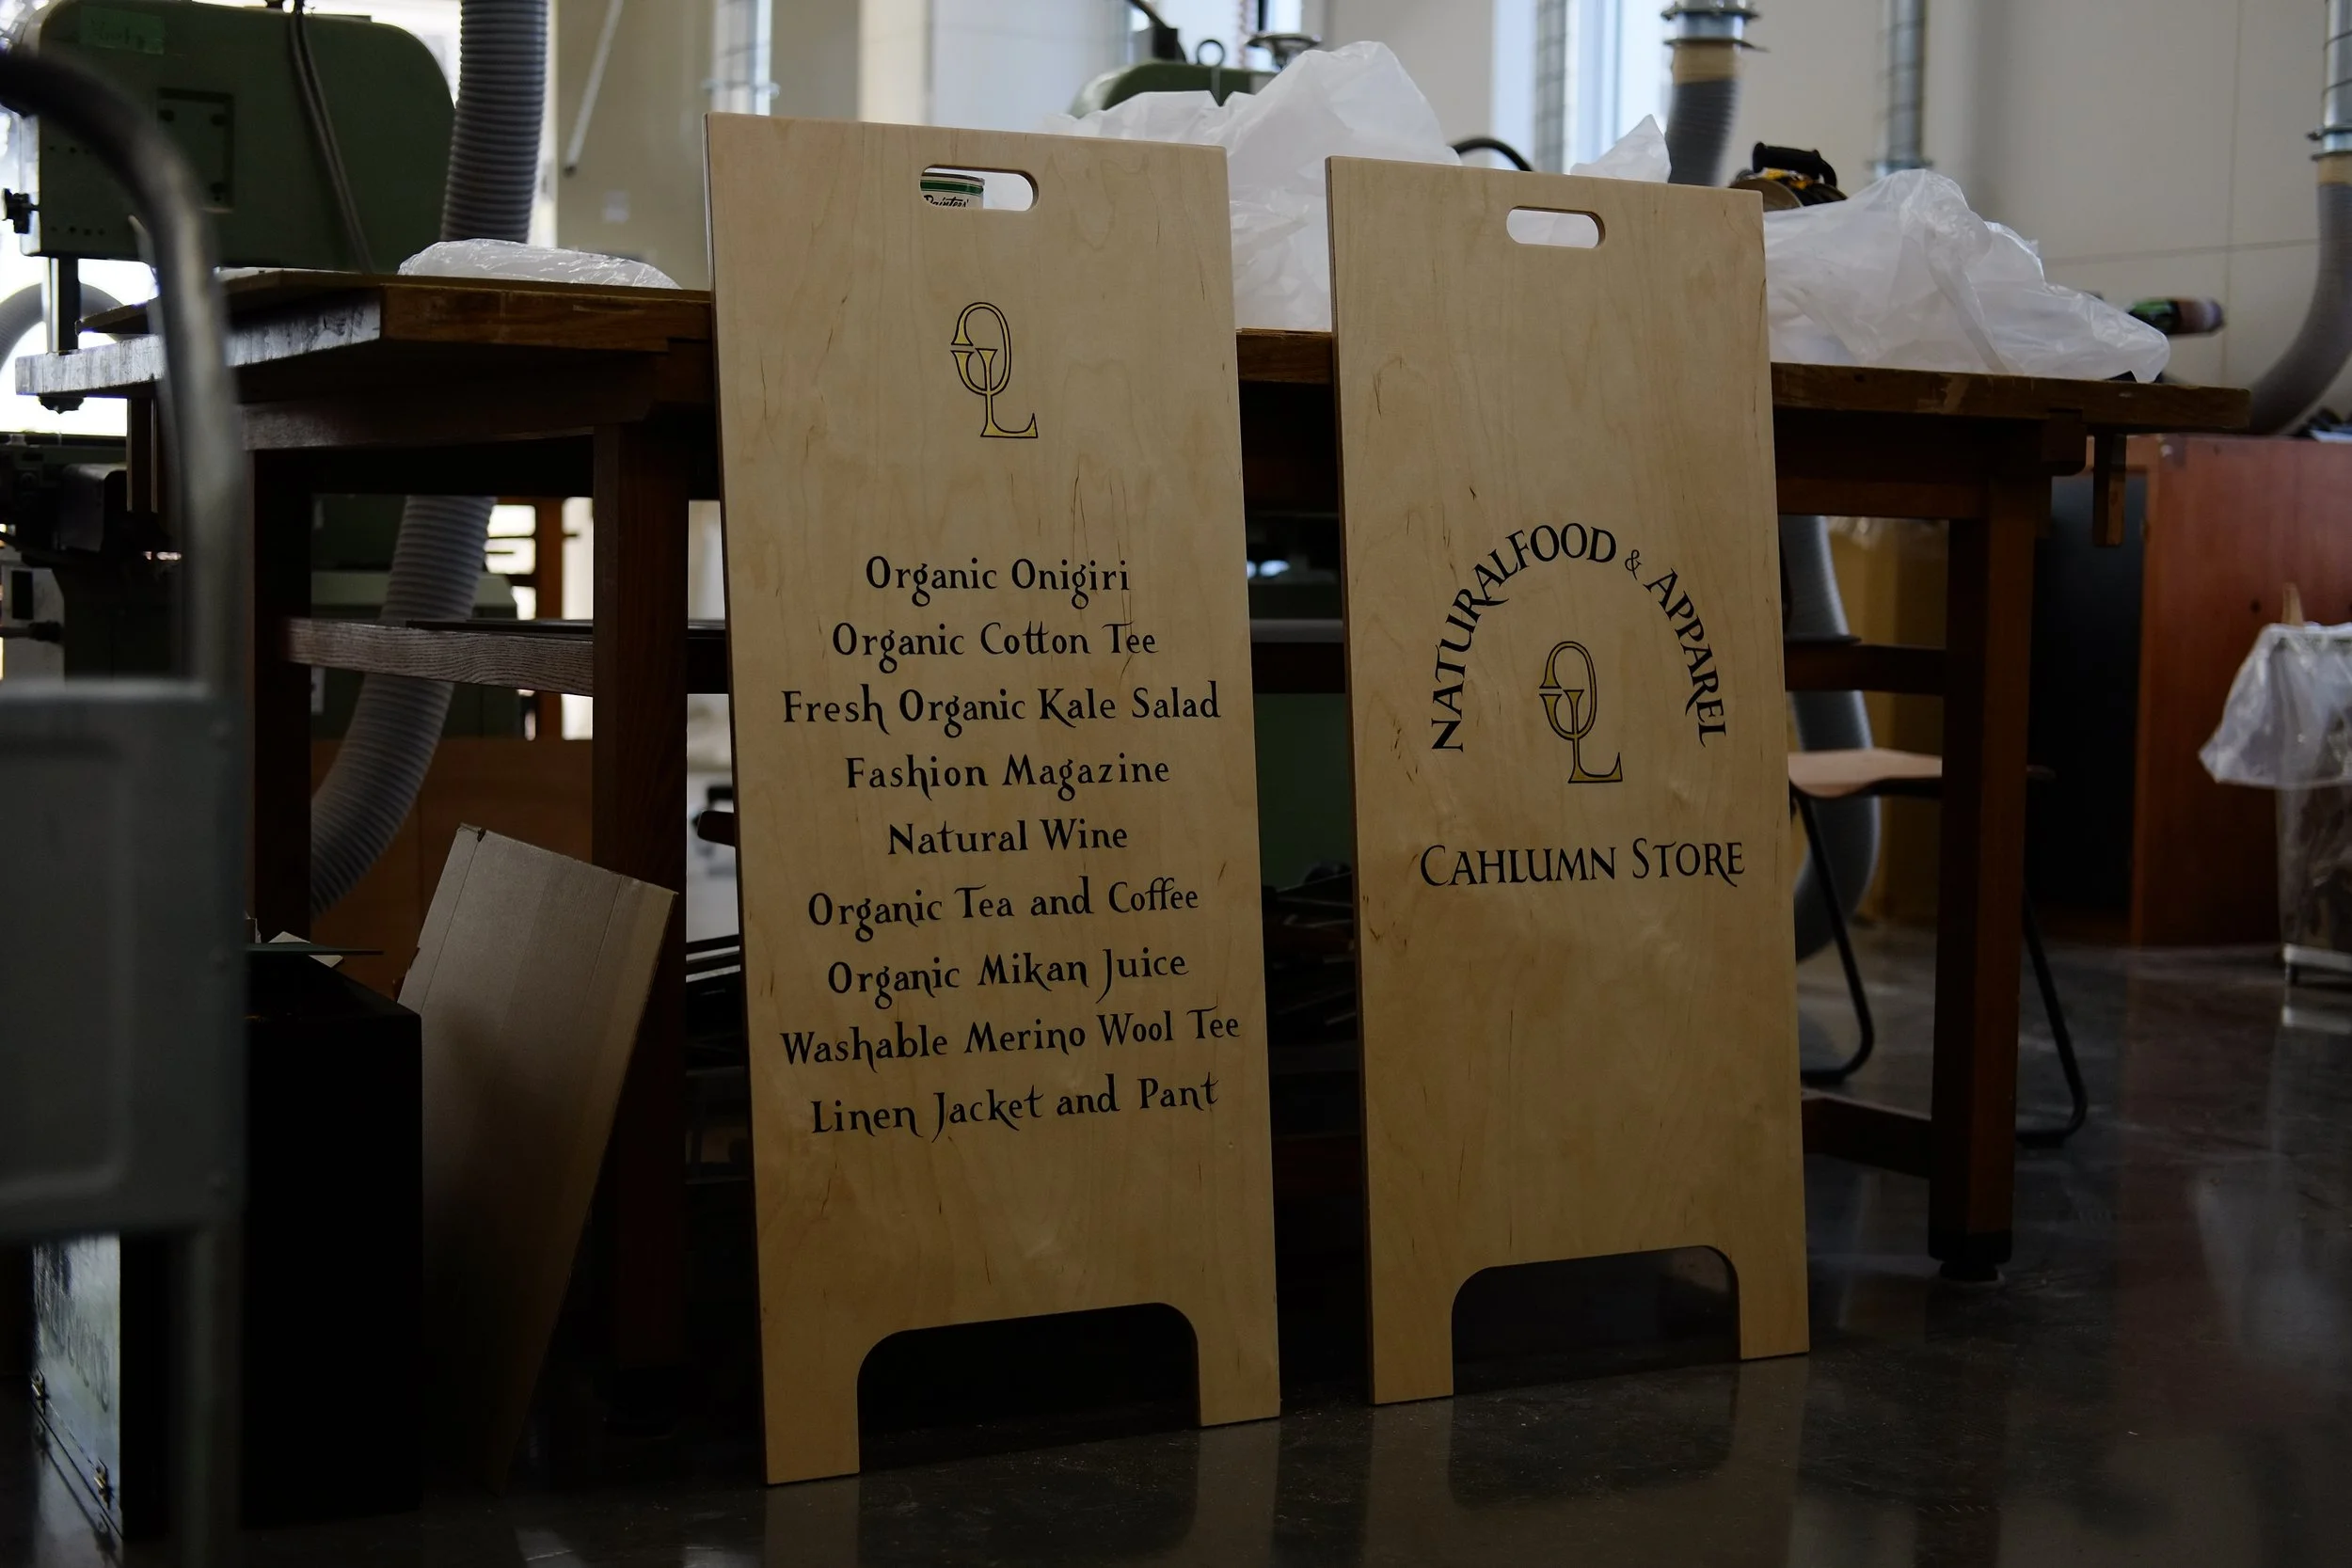 Painters'
Organic Onigiri
Organic Cotton Tee
Fresh Organic Kale Salad
Fashion Magazine
Natural Wine
Organic Tea and Coffee
Organic Mikan Juice
Washable Merino Wool Tee
Linen Jacket and Pant
NATURALFOOD & APPAREL
CL
CAHLUMN STORE